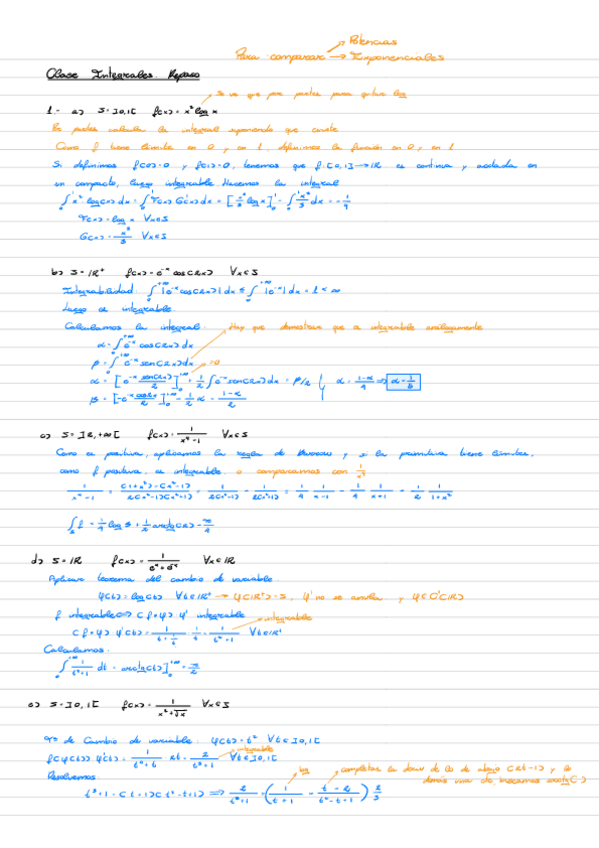 Potencias
Para comparar → Exponenciales
Clase Integrales. Repaso
Se ve que por partes para quitar log
1.- a) S=]0,1[ f(x)=x² log x
Se puede calcular la integral suponiendo que existe
Como f tiene límite en 0 y en 1, definimos la función en 0 y en 1
Si definimos f(0)=0 y f(1)=0, tenemos que f:[0,1]→ℝ es continua y acotada en
un compacto, luego integrable. Hacemos la integral
∫₀¹ x² log(x) dx = ∫₀¹ F(x) G'(x) dx = [x³/3 log x]₀¹ - ∫₀¹ x²/3 dx = -1/9
F(x)=log x ∀x∈S
G(x)=x³/3 ∀x∈S
b) S=ℝ⁺ f(x)=e⁻ˣ cos(2x) ∀x∈S
Integrabilidad: ∫₀^+∞ |e⁻ˣ cos(2x)| dx ≤ ∫₀^+∞ |e⁻ˣ| dx = 1 < ∞
Luego es integrable.
Calculamos la integral. Hay que demostrar que es integrable análogamente
α=∫₀^+∞ e⁻ˣ cos(2x) dx
β=∫₀^+∞ e⁻ˣ sen(2x) dx =0
α=[e⁻ˣ sen(2x)/2]₀^+∞ + 1/2 ∫ e⁻ˣ sen(2x) dx = β/2 α=(1-α)/4 ⇒ α=1/5
β=[-e⁻ˣ cos2x/2]₀^+∞ - 1/2 α = (1-α)/2
c) S=]2,+∞[ f(x)=1/(x⁴-1) ∀x∈S
Como es positiva, aplicamos la regla de Barrow y si la primitiva tiene límites,
como f positiva, es integrable. o comparamos con 1/x⁴
1/(x⁴-1) = ((1+x²)-(x²-1))/(2(x²-1)(x²+1)) = 1/(2(x²-1)) - 1/(2(x²+1)) = 1/4 1/(x-1) - 1/4 1/(x+1) - 1/2 1/(1+x²)
∫₂ f = 1/4 log 3 + 1/2 arctg(2) - π/4
d) S=ℝ f(x)=1/(eˣ+e⁻ˣ) ∀x∈ℝ
Aplicar teorema del cambio de variable.
φ(t)=log(t) ∀t∈ℝ⁺ → φ(ℝ⁺)=S, φ' no se anula y φ∈C¹(ℝ)
f integrable ⇔ (f∘φ) φ' integrable
integrable
(f∘φ) φ'(t)= 1/(t+1/t) 1/t = 1/(t²+1) ∀t∈ℝ⁺
Calculamos:
∫₀^+∞ 1/(t²+1) dt = arctg(t)]₀^+∞ = π/2
e) S=]0,1[ f(x)=1/(x²+√x) ∀x∈S
de Cambio de variable: φ(t)=t² ∀t∈]0,1[
integrable
f(φ(t)) φ'(t)= 1/(t⁴+t) 2t = 2/(t³+1) ∀t∈]0,1[
Resolvemos:
log
completar la deriv de de abajo (2t-1) y lo
demás una cte, buscamos arctg( )
t³+1=(t+1)(t²-t+1) ⇒ 2/(t³+1) = (1/(t+1) - (t-2)/(t²-t+1)) 2/3